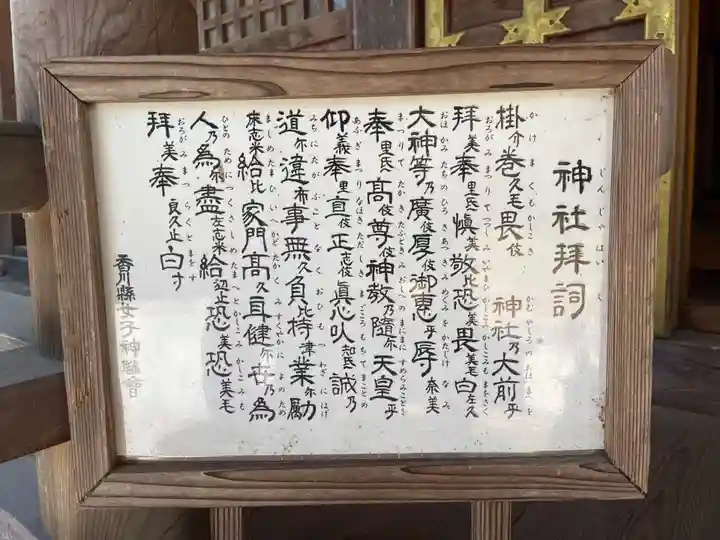 神社拝詞
じんじゃはいし
掛介巻久毛畏伎 神社乃大前乎
かけまくもかしこき かむやしろのおほまへを
拝美奉里氐慎美敬比恐美畏美毛白左久
おろがみまつりてつつしみいやまひかしこみかしこみもまをさく
大神等乃廣伎厚伎御恵乎辱奈美
おほかみたちのひろきあつきみめぐみをかたじけなみ
奉里氐高伎尊伎神教乃隨爾天皇乎
まつりてたかきたふときみをしへのまにまにすめらみことを
仰義奉里直伎正志伎眞心以知氐誠乃
あふぎまつりなほきただしきまごころもちてまことの
道爾違布事無久負比持津業爾勵
みちにたがふことなくおひもつわざにはげ
末志米給比家門高久身健爾世乃為
ましめたまひいへかどたかくみすこやかによのため
人乃為爾盡左志米給閉止恐美恐美毛
ひとのためにつくさしめたまへとかしこみかしこみも
拝美奉良久止白す
おろがみまつらくとまをす
香川縣女子神職會